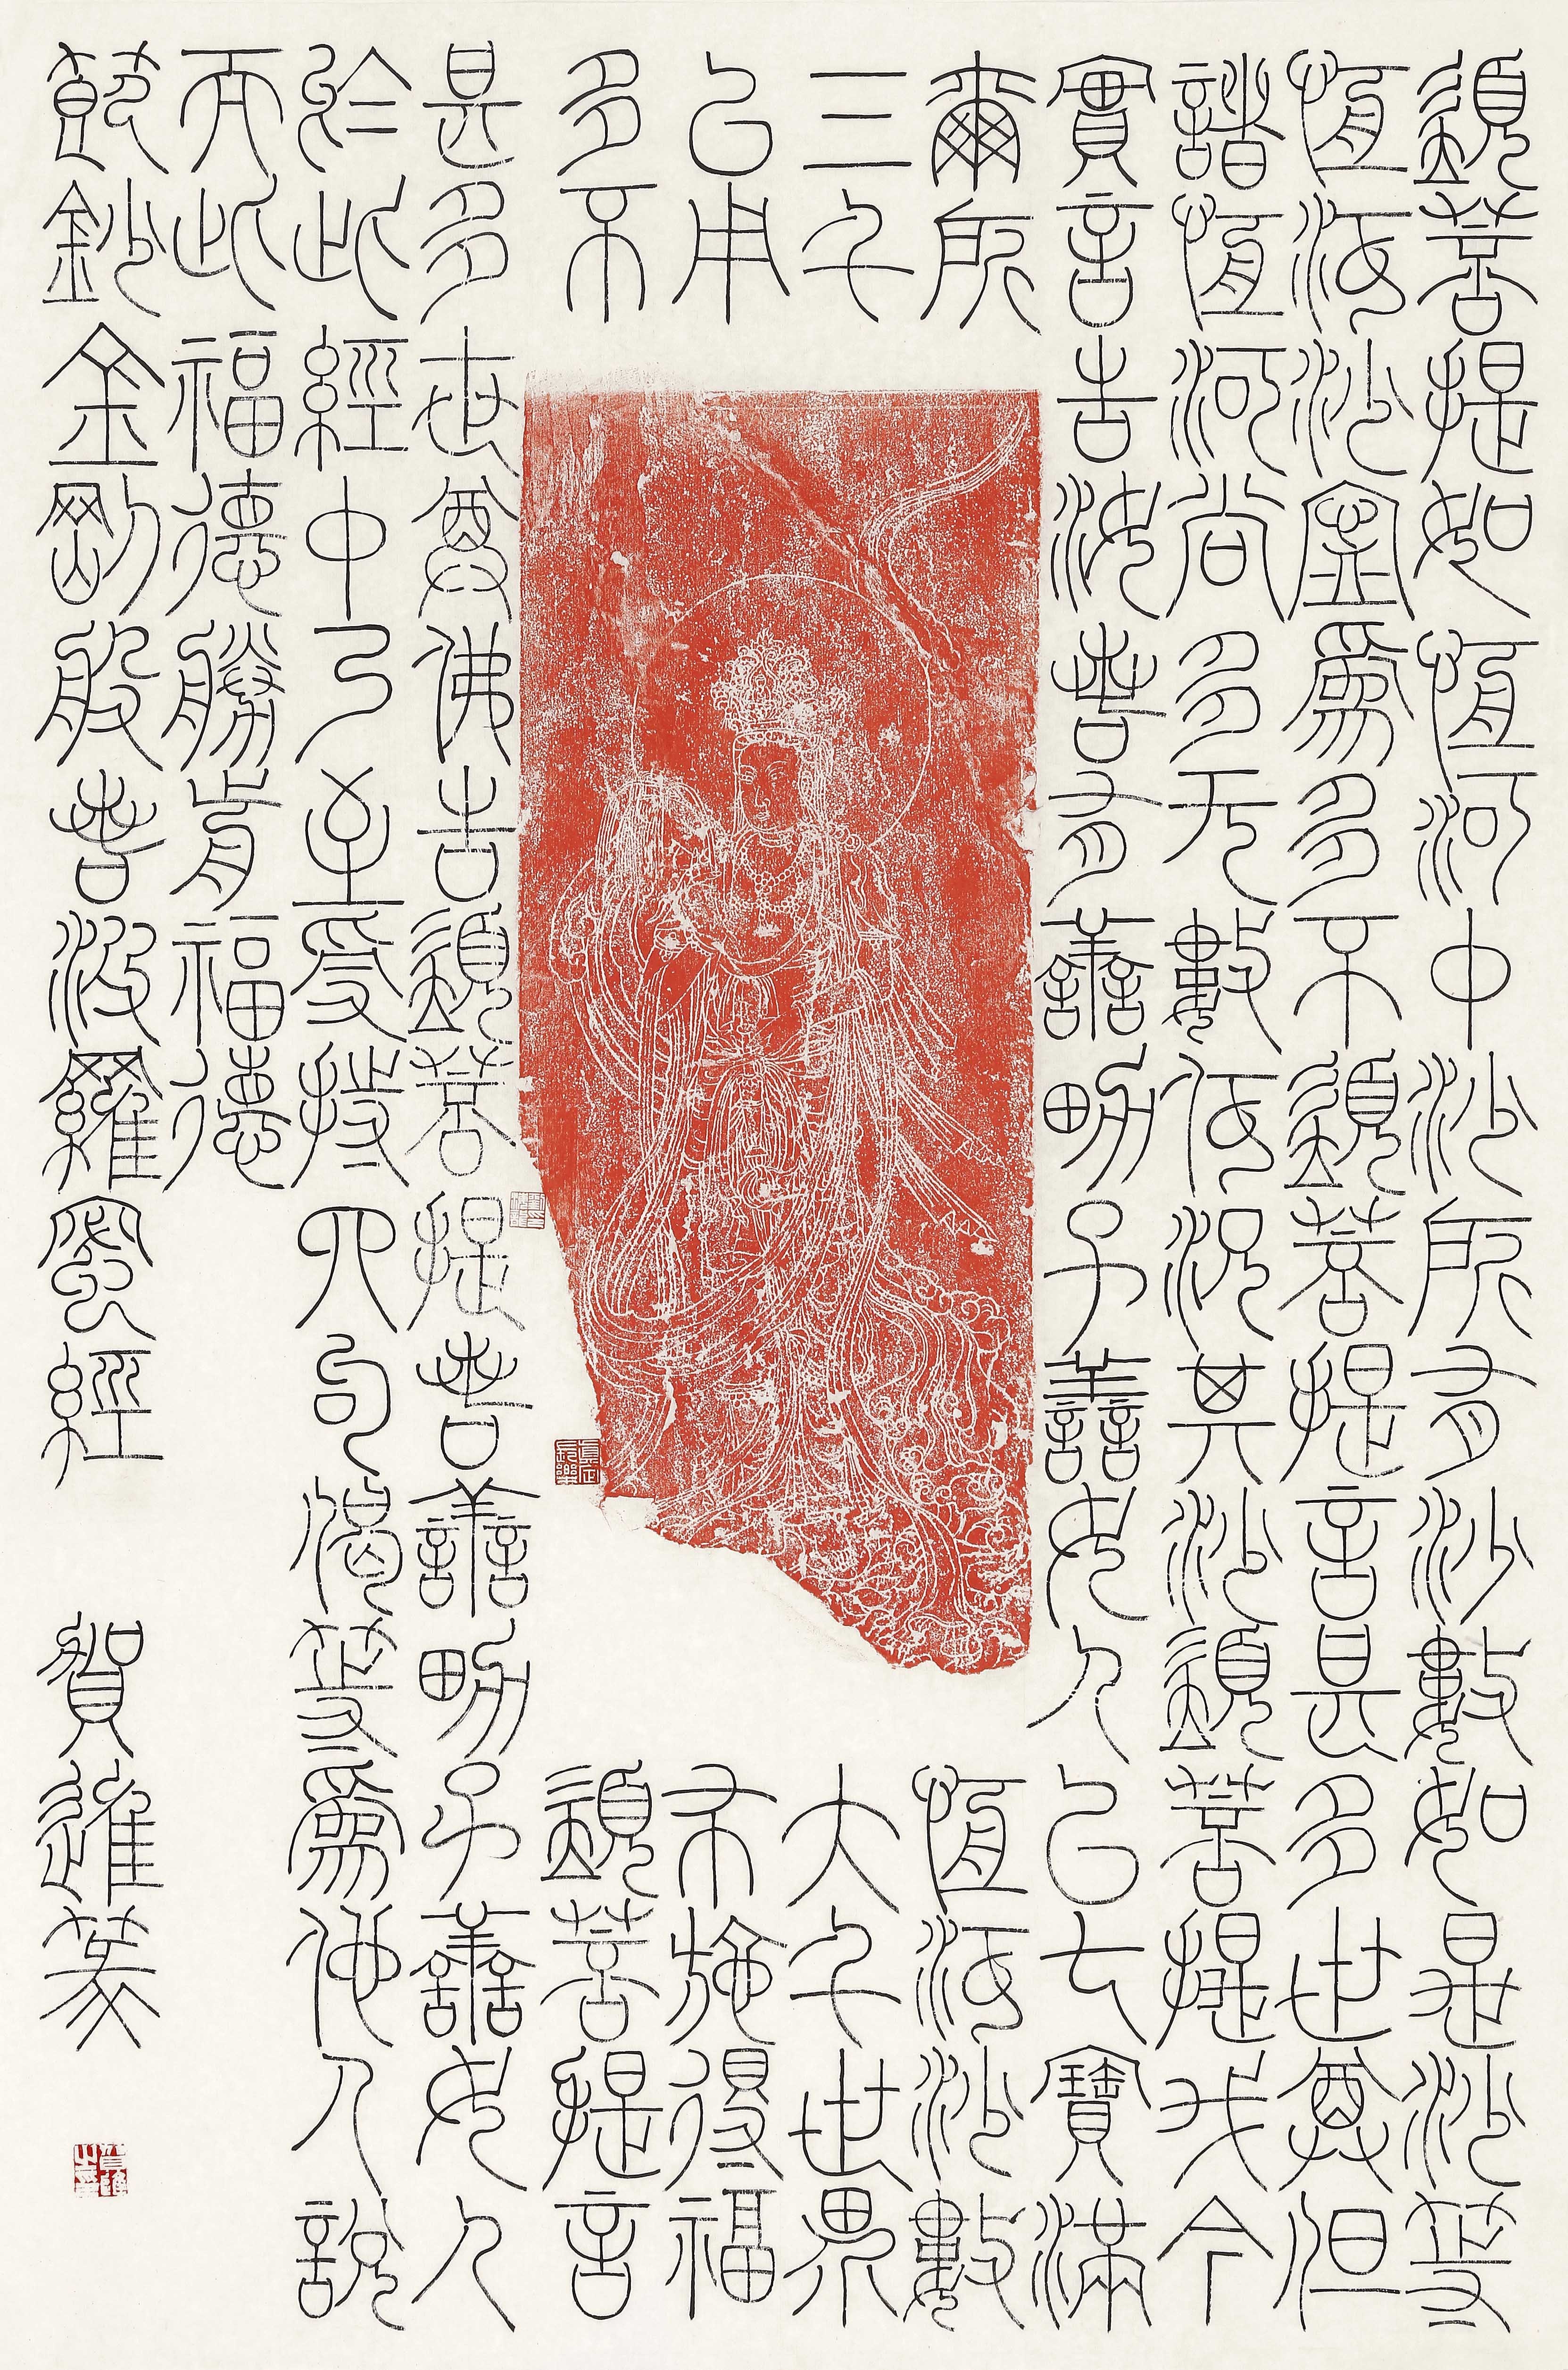 須菩提如恒河中沙所有沙數如是沙等
恒河沙寧為多不須菩提言甚多世尊但
諸恒河尚多无數何況其沙須菩提我今
實言告汝若有善男子善女人以七寶滿
爾所恒河沙數
三千大千世界
以用布施得福
多不須菩提言
甚多世尊佛告須菩提若善男子善女人
於此經中乃至受持四句偈等為他人說
而此福德勝前福德
節鈔金剛般若波羅蜜經 賀進篆